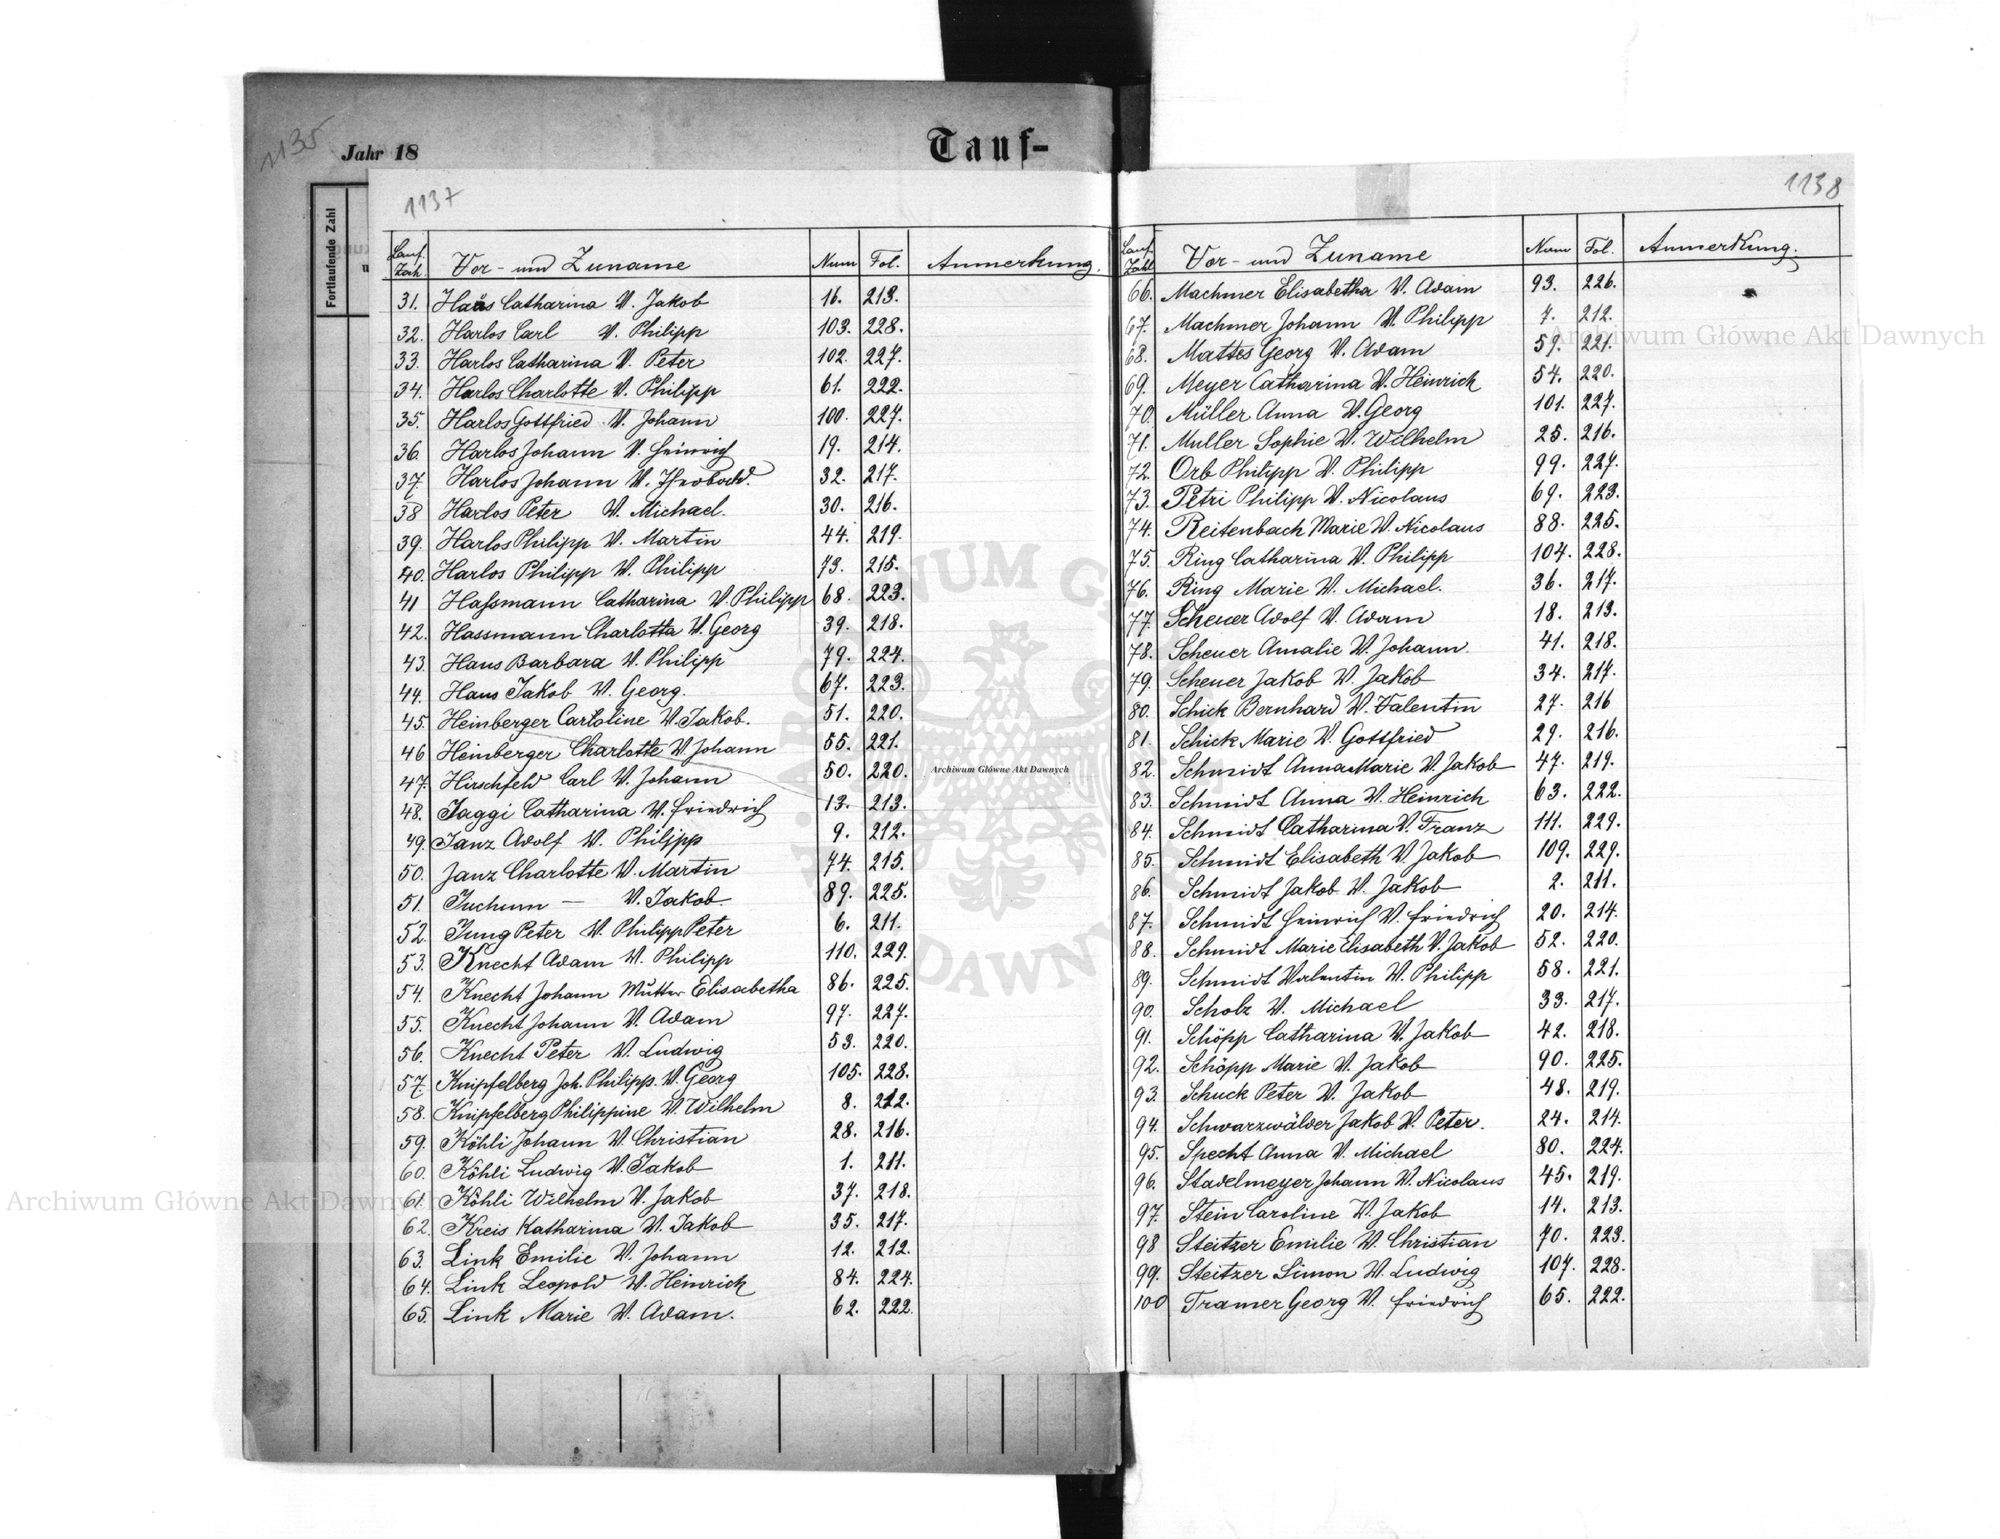 1135
Jahr 18
Tauf-
Fortlaufende Zahl
1137
Lauf. Zah. Vor- und Zuname Num Fol. Anmerkung.
31. Haas Catharina V. Jakob 16. 213.
32. Harlos Carl V. Philipp 103. 228.
33. Harlos Catharina V. Peter 102. 227.
34. Harlos Charlotte V. Philipp 61. 222.
35. Harlos Gottfried V. Johann 100. 227.
36. Harlos Johann V. Heinrich 19. 214.
37. Harlos Johann V. 32. 217.
38 Harlos Peter V. Michael. 30. 216.
39. Harlos Philipp V. Martin 44. 219.
40. Harlos Philipp V. Philipp 73. 215.
41 Haſsmann Catharina V. Philipp 68. 223.
42. Hassmann Charlotta V. Georg 39. 218.
43. Haus Barbara V. Philipp 79. 224.
44. Haus Jakob V. Georg. 67. 223.
45. Heinberger Carloline V. Jakob. 51. 220.
46 Heinberger Charlotte V. Johann 55. 221.
47. Hirschfeld Carl V. Johann 50. 220.
48. Jaggi Catharina V. Friedrich 13. 213.
49. Janz Adolf V. Philipp 9. 212.
50. Janz Charlotte V. Martin 74. 215.
51. Juchum — V. Jakob. 89. 225.
52. Jung Peter V. Philipp Peter 6. 211.
53. Knecht Adam V. Philipp 110. 229.
54. Knecht Johann Mutter Elisabetha 86. 225.
55. Knecht Johann V. Adam 97. 227.
56. Knecht Peter V. Ludwig 53. 220.
57. Knipfelberg Joh. Philipp. V. Georg 105. 228.
58. Knipfelberg Philippine V. Wilhelm 8. 212.
59. Köhli Johann V. Christian 28. 216.
60. Köhli Ludwig V. Jakob 1. 211.
61. Köhli Wilhelm V. Jakob 37. 218.
62. Kreis Katharina V. Jakob 35. 217.
63. Link Emilie V. Johann 12. 212.
64. Link Leopold V. Heinrich 84. 224.
65. Link Marie V. Adam. 62. 222.
1138
Lauf. Zahl Vor- und Zuname Num Fol. Anmerkung.
66. Machmer Elisabetha V. Adam 93. 226.
67. Machmer Johann V. Philipp 7. 212.
68. Mattes Georg V. Adam 59. 221.
69. Meyer Catharina V. Heinrich 54. 220.
70. Müller Anna V. Georg 101. 227.
71. Muller Sophie V. Wilhelm 25. 216.
72. Orb Philipp V. Philipp 99. 227.
73. Petri Philipp V. Nicolaus 69. 223.
74. Reitenbach Marie V. Nicolaus 88. 225.
75. Ring Catharina V. Philipp 104. 228.
76. Ring Marie V. Michael. 36. 217.
77. Scheuer Adolf V. Adam 18. 213.
78. Scheuer Amalie V. Johann. 41. 218.
79. Scheuer Jakob V. Jakob 34. 217.
80. Schick Bernhard V. Valentin 27. 216
81. Schick Marie V. Gottfried 29. 216.
82. Schmidt Anna Marie V. Jakob 47. 219.
83. Schmidt Anna V. Heinrich 63. 222.
84. Schmidt Catharina V. Franz 111. 229.
85. Schmidt Elisabeth V. Jakob 109. 229.
86. Schmidt Jakob V. Jakob 2. 211.
87. Schmidt Heinrich V. Friedrich 20. 214.
88. Schmidt Marie Elisabeth V. Jakob 52. 220.
89. Schmidt Valentin V. Philipp 58. 221.
90. Scholz V. Michael 33. 217.
91. Schöpp Catharina V. Jakob 42. 218.
92. Schöpp Marie V. Jakob 90. 225.
93. Schuck Peter V. Jakob 48. 219.
94. Schwarzwälder Jakob V. Peter. 24. 214.
95. Specht Anna V. Michael 80. 224.
96. Stadelmeyer Johann V. Nicolaus 45. 219.
97. Stein Caroline V. Jakob 14. 213.
98 Steitzer Emilie V. Christian 70. 223.
99. Steitzer Simon V. Ludwig 107. 228.
100 Tramer Georg V. Friedrich 65. 222.
Archiwum Główne Akt Dawnych
Archiwum Główne Akt Dawnych
Archiwum Główne Akt Dawnych